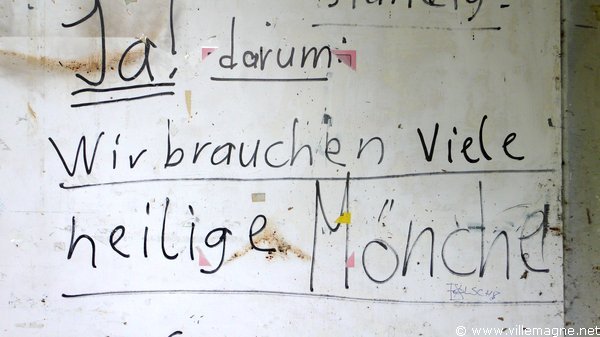 Ja! darum:
Wir brauchen Viele
heilige Mönche
© www.villemagne.net